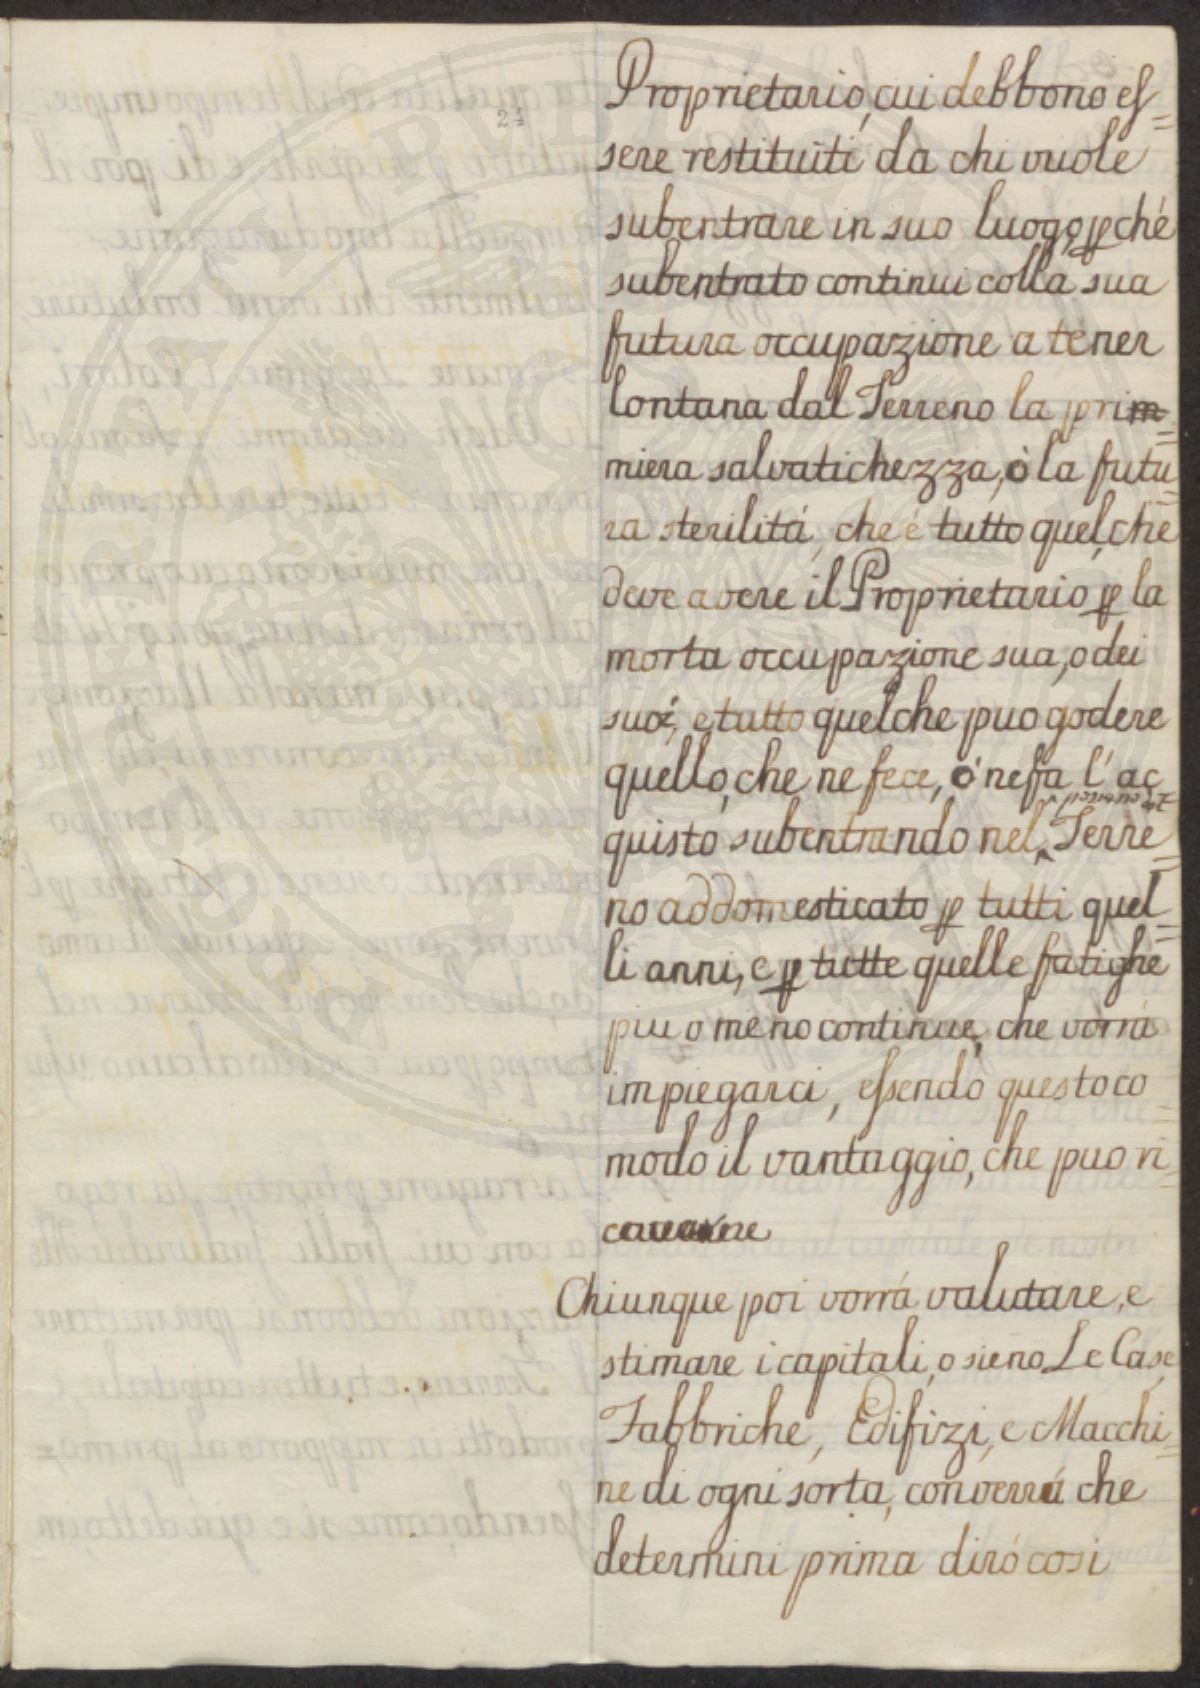 24
Proprietario, cui debbono es=
sere restituiti da chi vuole
subentrare in suo luogo, p ché
subentrato continui colla sua
futura occupazione a tener
lontana dal Terreno la pri=
miera salvatichezza, ó la futu=
ra sterilitá, che é tutto quel, che
deve avere il Proprietario p la
morta occupazione sua, o dei
suoi, e tutto quelche puo godere
quello, che ne fece, ó ne fa l'ac
quisto subentrando nel Terre=
no addomesticato p tutti quel=
li anni, e p tutte quelle fatighe
piu o meno continue, che vorrá
impiegarci, essendo questo co=
modo il vantaggio, che puo ri=
cavarne
Chiunque poi vorrá valutare, e
stimare i capitali, o sieno Le Case,
Fabbriche, Edifizi, e Macchi=
ne di ogni sorta, converrá che
determini prima diró cosi